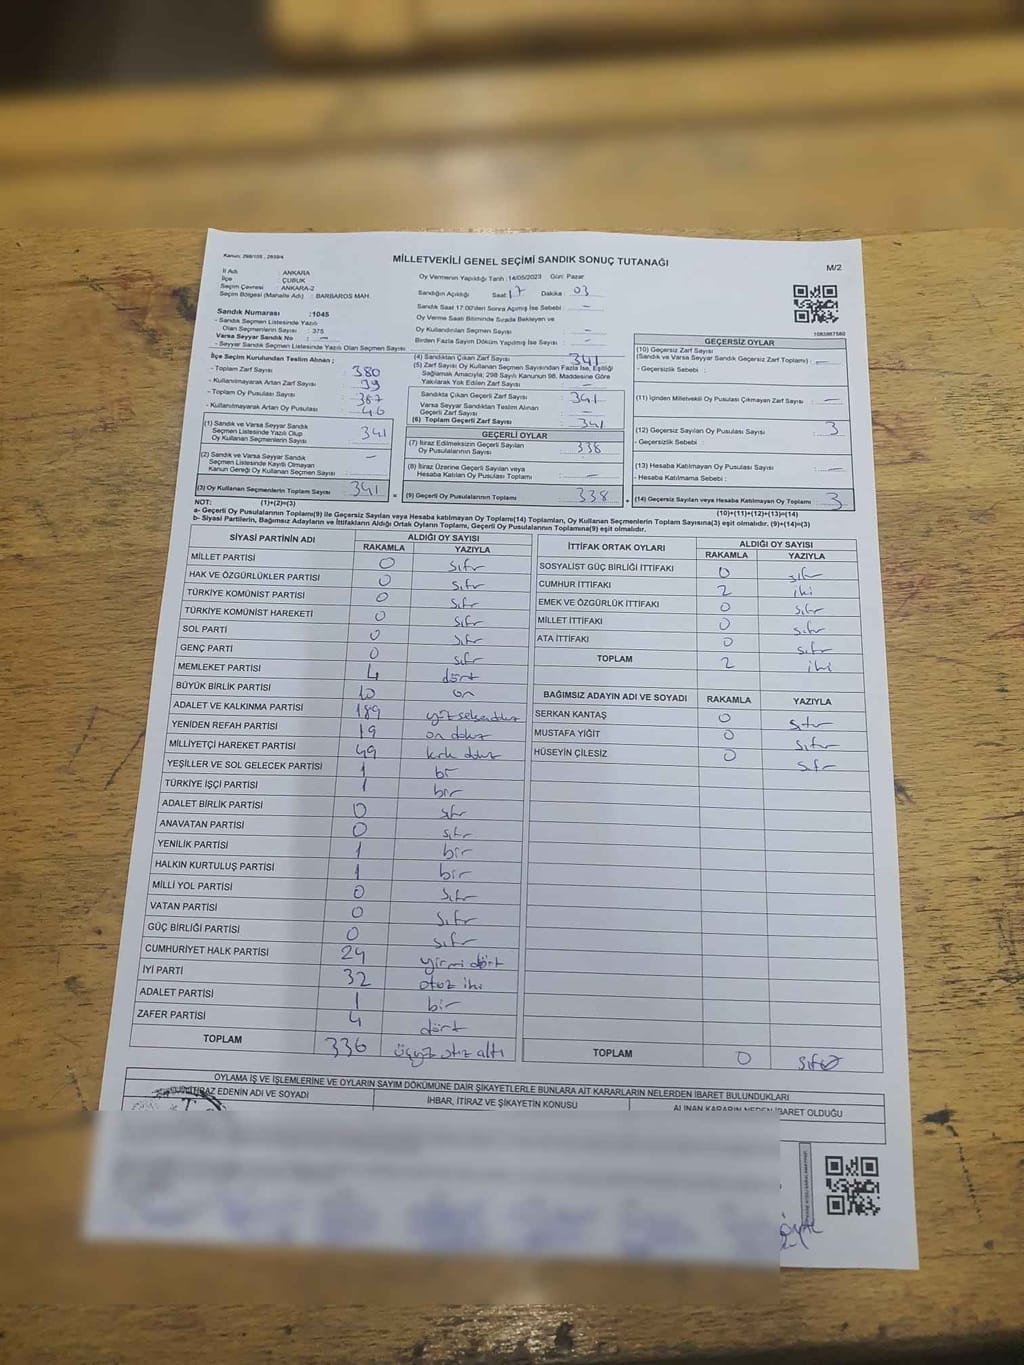 Kanun: 298/105 , 2839/4
MİLLETVEKİLİ GENEL SEÇİMİ SANDIK SONUÇ TUTANAĞI
M/2
İl Adı : ANKARA
İlçe : ÇUBUK
Seçim Çevresi : ANKARA-2
Seçim Bölgesi (Mahalle Adı) : BARBAROS MAH.
Sandık Numarası :1045
- Sandık Seçmen Listesinde Yazılı
Olan Seçmenlerin Sayısı : 375
Varsa Seyyar Sandık No : —
- Seyyar Sandık Seçmen Listesinde Yazılı Olan Seçmen Sayısı :
Oy Vermenin Yapıldığı Tarih :14/05/2023 Gün: Pazar
Sandığın Açıldığı Saat 17 Dakika : 03
Sandık Saat 17:00'den Sonra Açılmış İse Sebebi : —
Oy Verme Saati Bitiminde Sırada Bekleyen ve
Oy Kullandırılan Seçmen Sayısı : —
Birden Fazla Sayım Döküm Yapılmış İse Sayısı : —
1083887560
İlçe Seçim Kurulundan Teslim Alınan ;
- Toplam Zarf Sayısı : 380
- Kullanılmayarak Artan Zarf Sayısı : 39
- Toplam Oy Pusulası Sayısı : 387
- Kullanılmayarak Artan Oy Pusulası : 46
(1) Sandık ve Varsa Seyyar Sandık
Seçmen Listesinde Yazılı Olup
Oy Kullanan Seçmenlerin Sayısı : 341
(2) Sandık ve Varsa Seyyar Sandık
Seçmen Listesinde Kayıtlı Olmayan
Kanun Gereği Oy Kullanan Seçmen Sayısı : —
(3) Oy Kullanan Seçmenlerin Toplam Sayısı : 341 =
(1)+(2)=(3)
(4) Sandıktan Çıkan Zarf Sayısı : 341
(5) Zarf Sayısı Oy Kullanan Seçmen Sayısından Fazla İse, Eşitliği
Sağlamak Amacıyla; 298 Sayılı Kanunun 98. Maddesine Göre
Yakılarak Yok Edilen Zarf Sayısı : —
Sandıkta Çıkan Geçerli Zarf Sayısı : 341
Varsa Seyyar Sandıktan Teslim Alınan
Geçerli Zarf Sayısı : —
(6) Toplam Geçerli Zarf Sayısı : 341
GEÇERLİ OYLAR
(7) İtiraz Edilmeksizin Geçerli Sayılan
Oy Pusulalarının Sayısı : 338
(8) İtiraz Üzerine Geçerli Sayılan veya
Hesaba Katılan Oy Pusulası Toplamı : —
(9) Geçerli Oy Pusulalarının Toplamı : 338 +
GEÇERSİZ OYLAR
(10) Geçersiz Zarf Sayısı
(Sandık ve Varsa Seyyar Sandık Geçersiz Zarf Toplamı) : —
- Geçersizlik Sebebi :
(11) İçinden Milletvekili Oy Pusulası Çıkmayan Zarf Sayısı : —
(12) Geçersiz Sayılan Oy Pusulası Sayısı : 3
- Geçersizlik Sebebi :
(13) Hesaba Katılmayan Oy Pusulası Sayısı : —
- Hesaba Katılmama Sebebi :
(14) Geçersiz Sayılan veya Hesaba Katılmayan Oy Toplamı : 3
(10)+(11)+(12)+(13)=(14)
NOT:
a- Geçerli Oy Pusulalarının Toplamı(9) ile Geçersiz Sayılan veya Hesaba katılmayan Oy Toplamı(14) Toplamları, Oy Kullanan Seçmenlerin Toplam Sayısına(3) eşit olmalıdır. (9)+(14)=(3)
b- Siyasi Partilerin, Bağımsız Adayların ve İttifakların Aldığı Ortak Oyların Toplamı, Geçerli Oy Pusulalarının Toplamına(9) eşit olmalıdır.
SİYASİ PARTİNİN ADI ALDIĞI OY SAYISI
RAKAMLA YAZIYLA
MİLLET PARTİSİ 0 sıfır
HAK VE ÖZGÜRLÜKLER PARTİSİ 0 sıfır
TÜRKİYE KOMÜNİST PARTİSİ 0 sıfır
TÜRKİYE KOMÜNİST HAREKETİ 0 sıfır
SOL PARTİ 0 sıfır
GENÇ PARTİ 0 sıfır
MEMLEKET PARTİSİ 4 dört
BÜYÜK BİRLİK PARTİSİ 10 on
ADALET VE KALKINMA PARTİSİ 189 yüz seksen dokuz
YENİDEN REFAH PARTİSİ 19 on dokuz
MİLLİYETÇİ HAREKET PARTİSİ 49 kırk dokuz
YEŞİLLER VE SOL GELECEK PARTİSİ 1 bir
TÜRKİYE İŞÇİ PARTİSİ 1 bir
ADALET BİRLİK PARTİSİ 0 sıfır
ANAVATAN PARTİSİ 0 sıfır
YENİLİK PARTİSİ 1 bir
HALKIN KURTULUŞ PARTİSİ 1 bir
MİLLİ YOL PARTİSİ 0 sıfır
VATAN PARTİSİ 0 sıfır
GÜÇ BİRLİĞİ PARTİSİ 0 sıfır
CUMHURİYET HALK PARTİSİ 24 yirmi dört
İYİ PARTİ 32 otuz iki
ADALET PARTİSİ 1 bir
ZAFER PARTİSİ 4 dört
TOPLAM 336 üçyüz otuz altı
İTTİFAK ORTAK OYLARI ALDIĞI OY SAYISI
RAKAMLA YAZIYLA
SOSYALİST GÜÇ BİRLİĞİ İTTİFAKI 0 sıfır
CUMHUR İTTİFAKI 2 iki
EMEK VE ÖZGÜRLÜK İTTİFAKI 0 sıfır
MİLLET İTTİFAKI 0 sıfır
ATA İTTİFAKI 0 sıfır
TOPLAM 2 iki
BAĞIMSIZ ADAYIN ADI VE SOYADI RAKAMLA YAZIYLA
SERKAN KANTAŞ 0 sıfır
MUSTAFA YİĞİT 0 sıfır
HÜSEYİN ÇİLESİZ 0 sıfır
TOPLAM 0 sıfır
OYLAMA İŞ VE İŞLEMLERİNE VE OYLARIN SAYIM DÖKÜMÜNE DAİR ŞİKAYETLERLE BUNLARA AİT KARARLARIN NELERDEN İBARET BULUNDUKLARI
İTİRAZ EDENİN ADI VE SOYADI
İHBAR, İTİRAZ VE ŞİKAYETİN KONUSU
ALINAN KARARIN NEDEN İBARET OLDUĞU